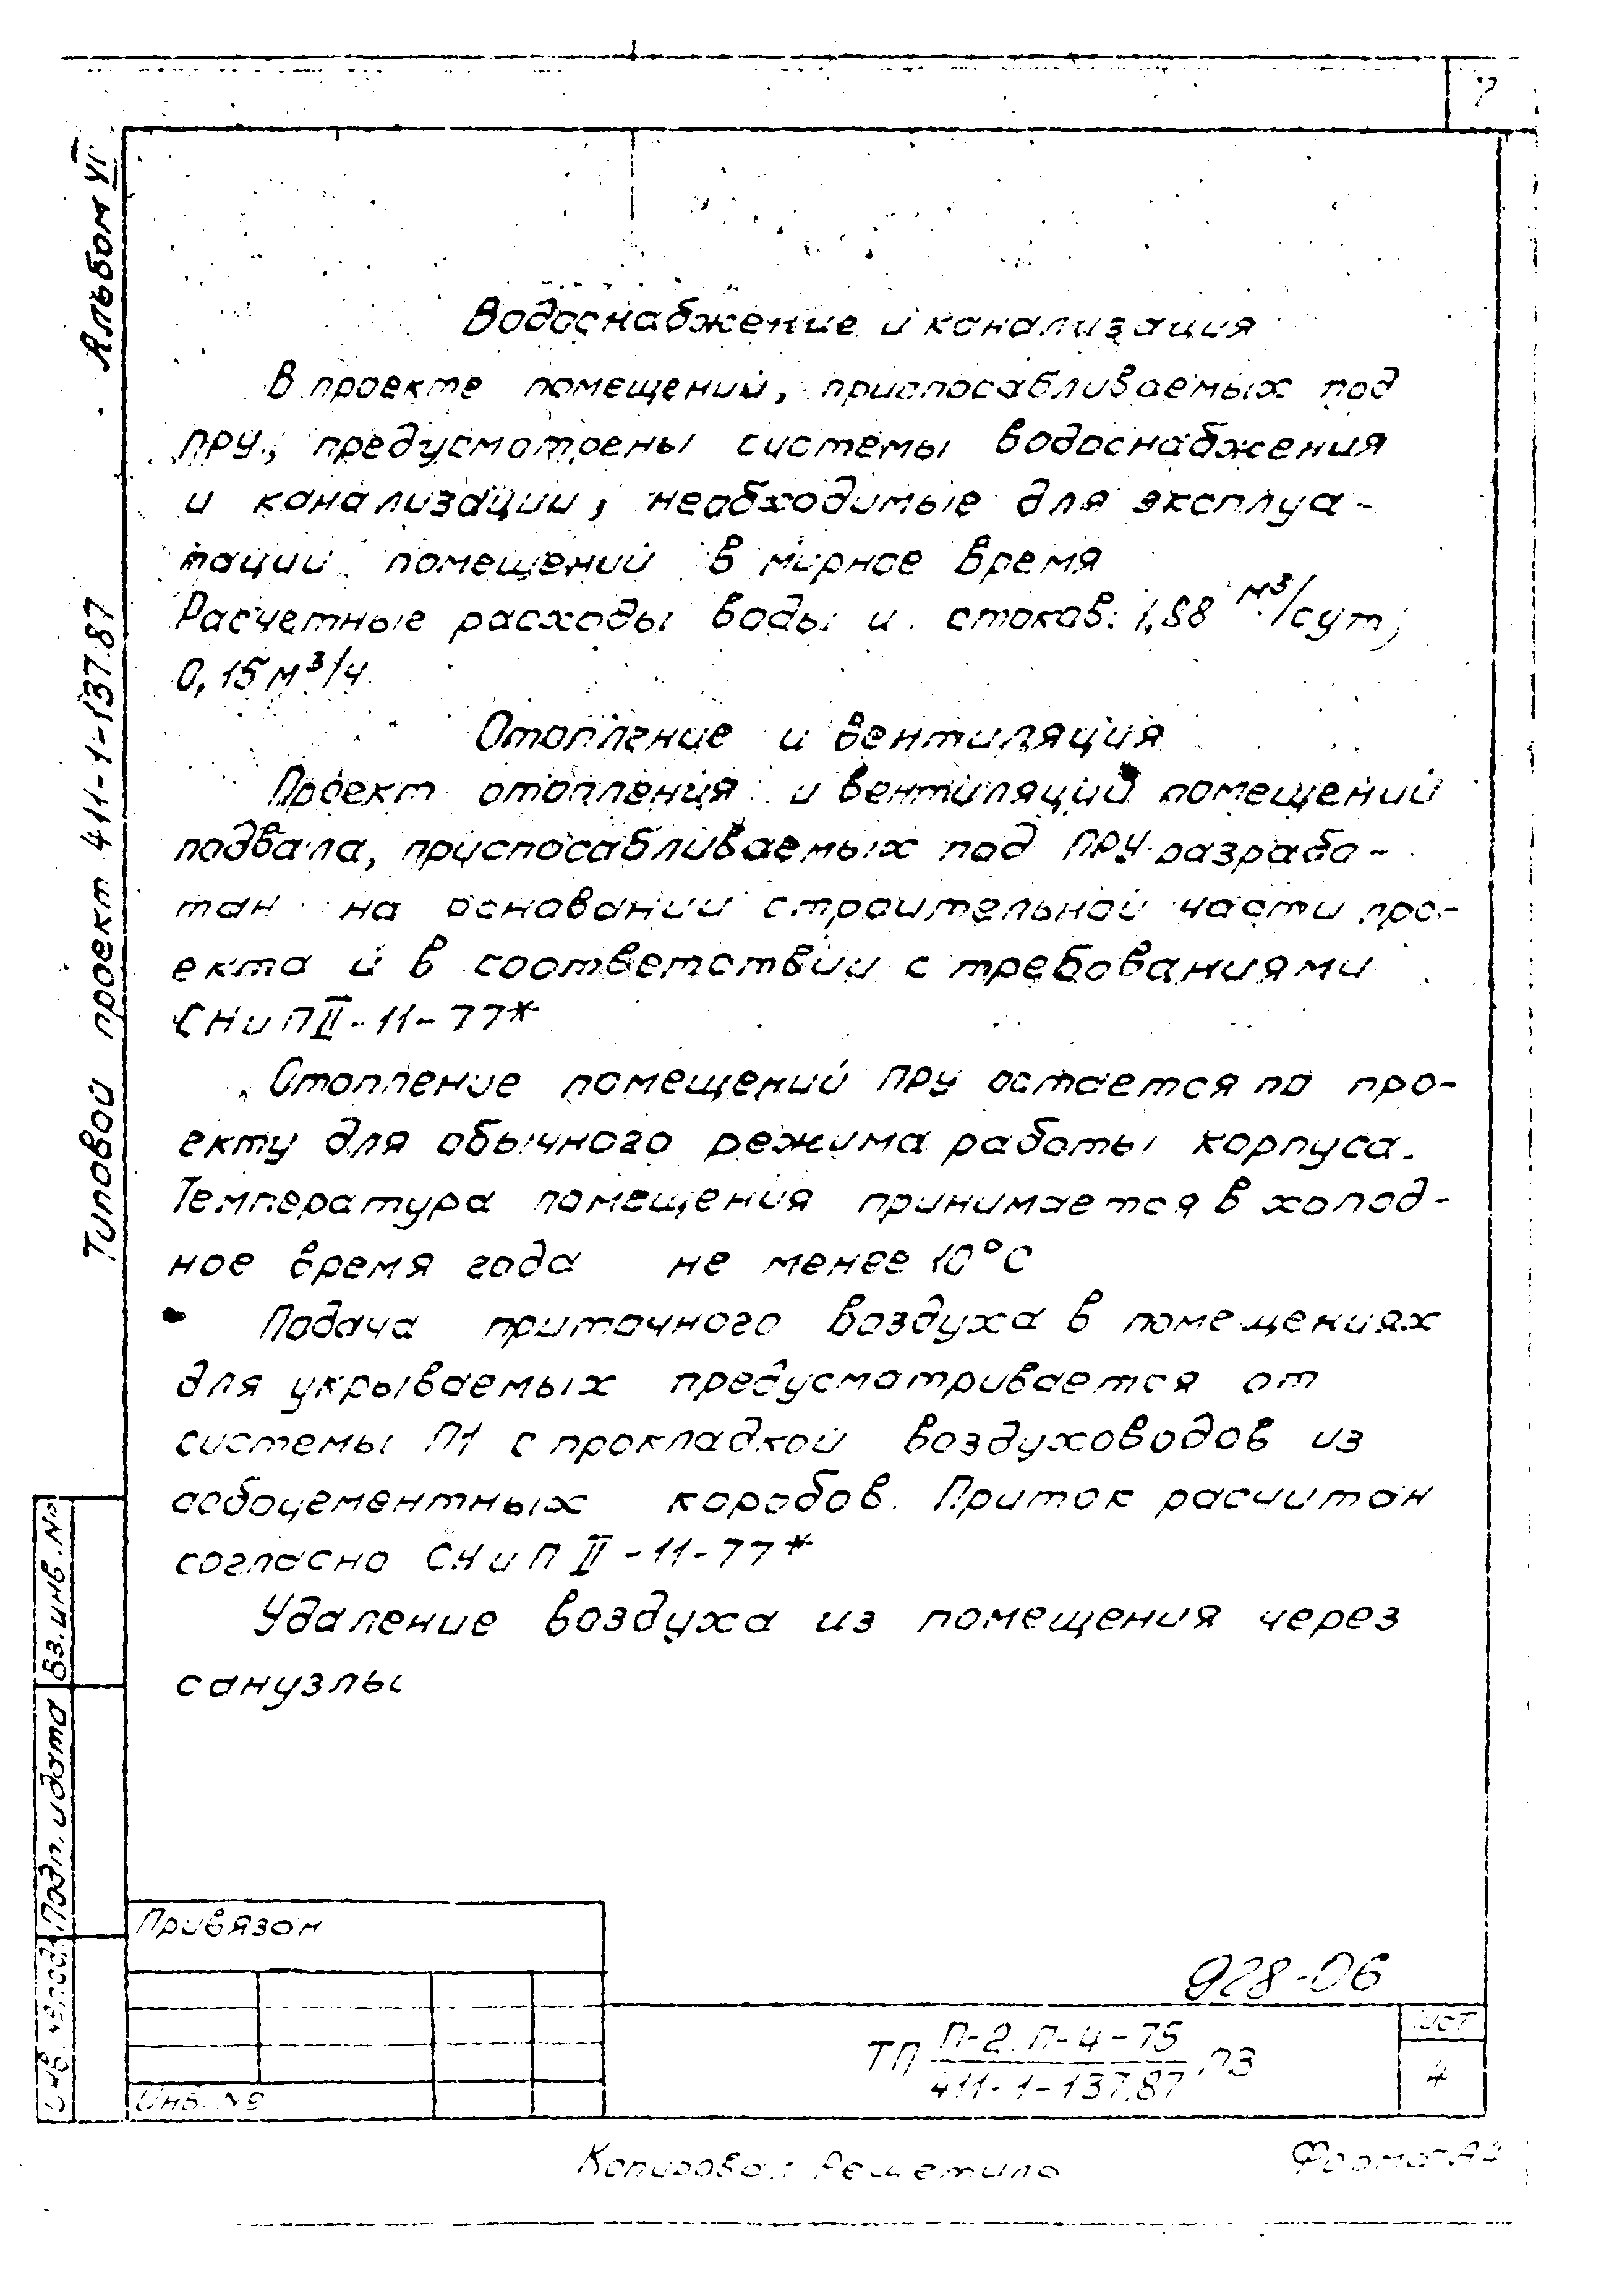 7
Альбом VI
Типовой проект 411-1-137.87
Водоснабжение и канализация
В проекте помещений, приспосабливаемых под
ПРУ, предусмотрены системы водоснабжения
и канализации, необходимые для эксплуа-
тации помещений в мирное время
Расчетные расходы воды и стоков: 1,88 м³/сут;
0,15 м³/ч
Отопление и вентиляция
Проект отопления и вентиляции помещений
подвала, приспосабливаемых под ПРУ разрабо-
тан на основании строительной части про-
екта и в соответствии с требованиями
СНиП II-11-77*
Отопление помещений ПРУ остается по про-
екту для обычного режима работы корпуса.
Температура помещения принимается в холод-
ное время года не менее 10°С
Подача приточного воздуха в помещениях
для укрываемых предусматривается от
системы П1 с прокладкой воздуховодов из
асбоцементных коробов. Приток расчитан
согласно СНиП II-11-77*
Удаление воздуха из помещения через
санузлы
Вз. инв. №
Подп. и дата
Инв. № подл.
Привязан
Инв. №
928-06
ТП П-2.П-4-75 ПЗ
411-1-137.87
Лист
4
Копировал: Решетило
Формат А4